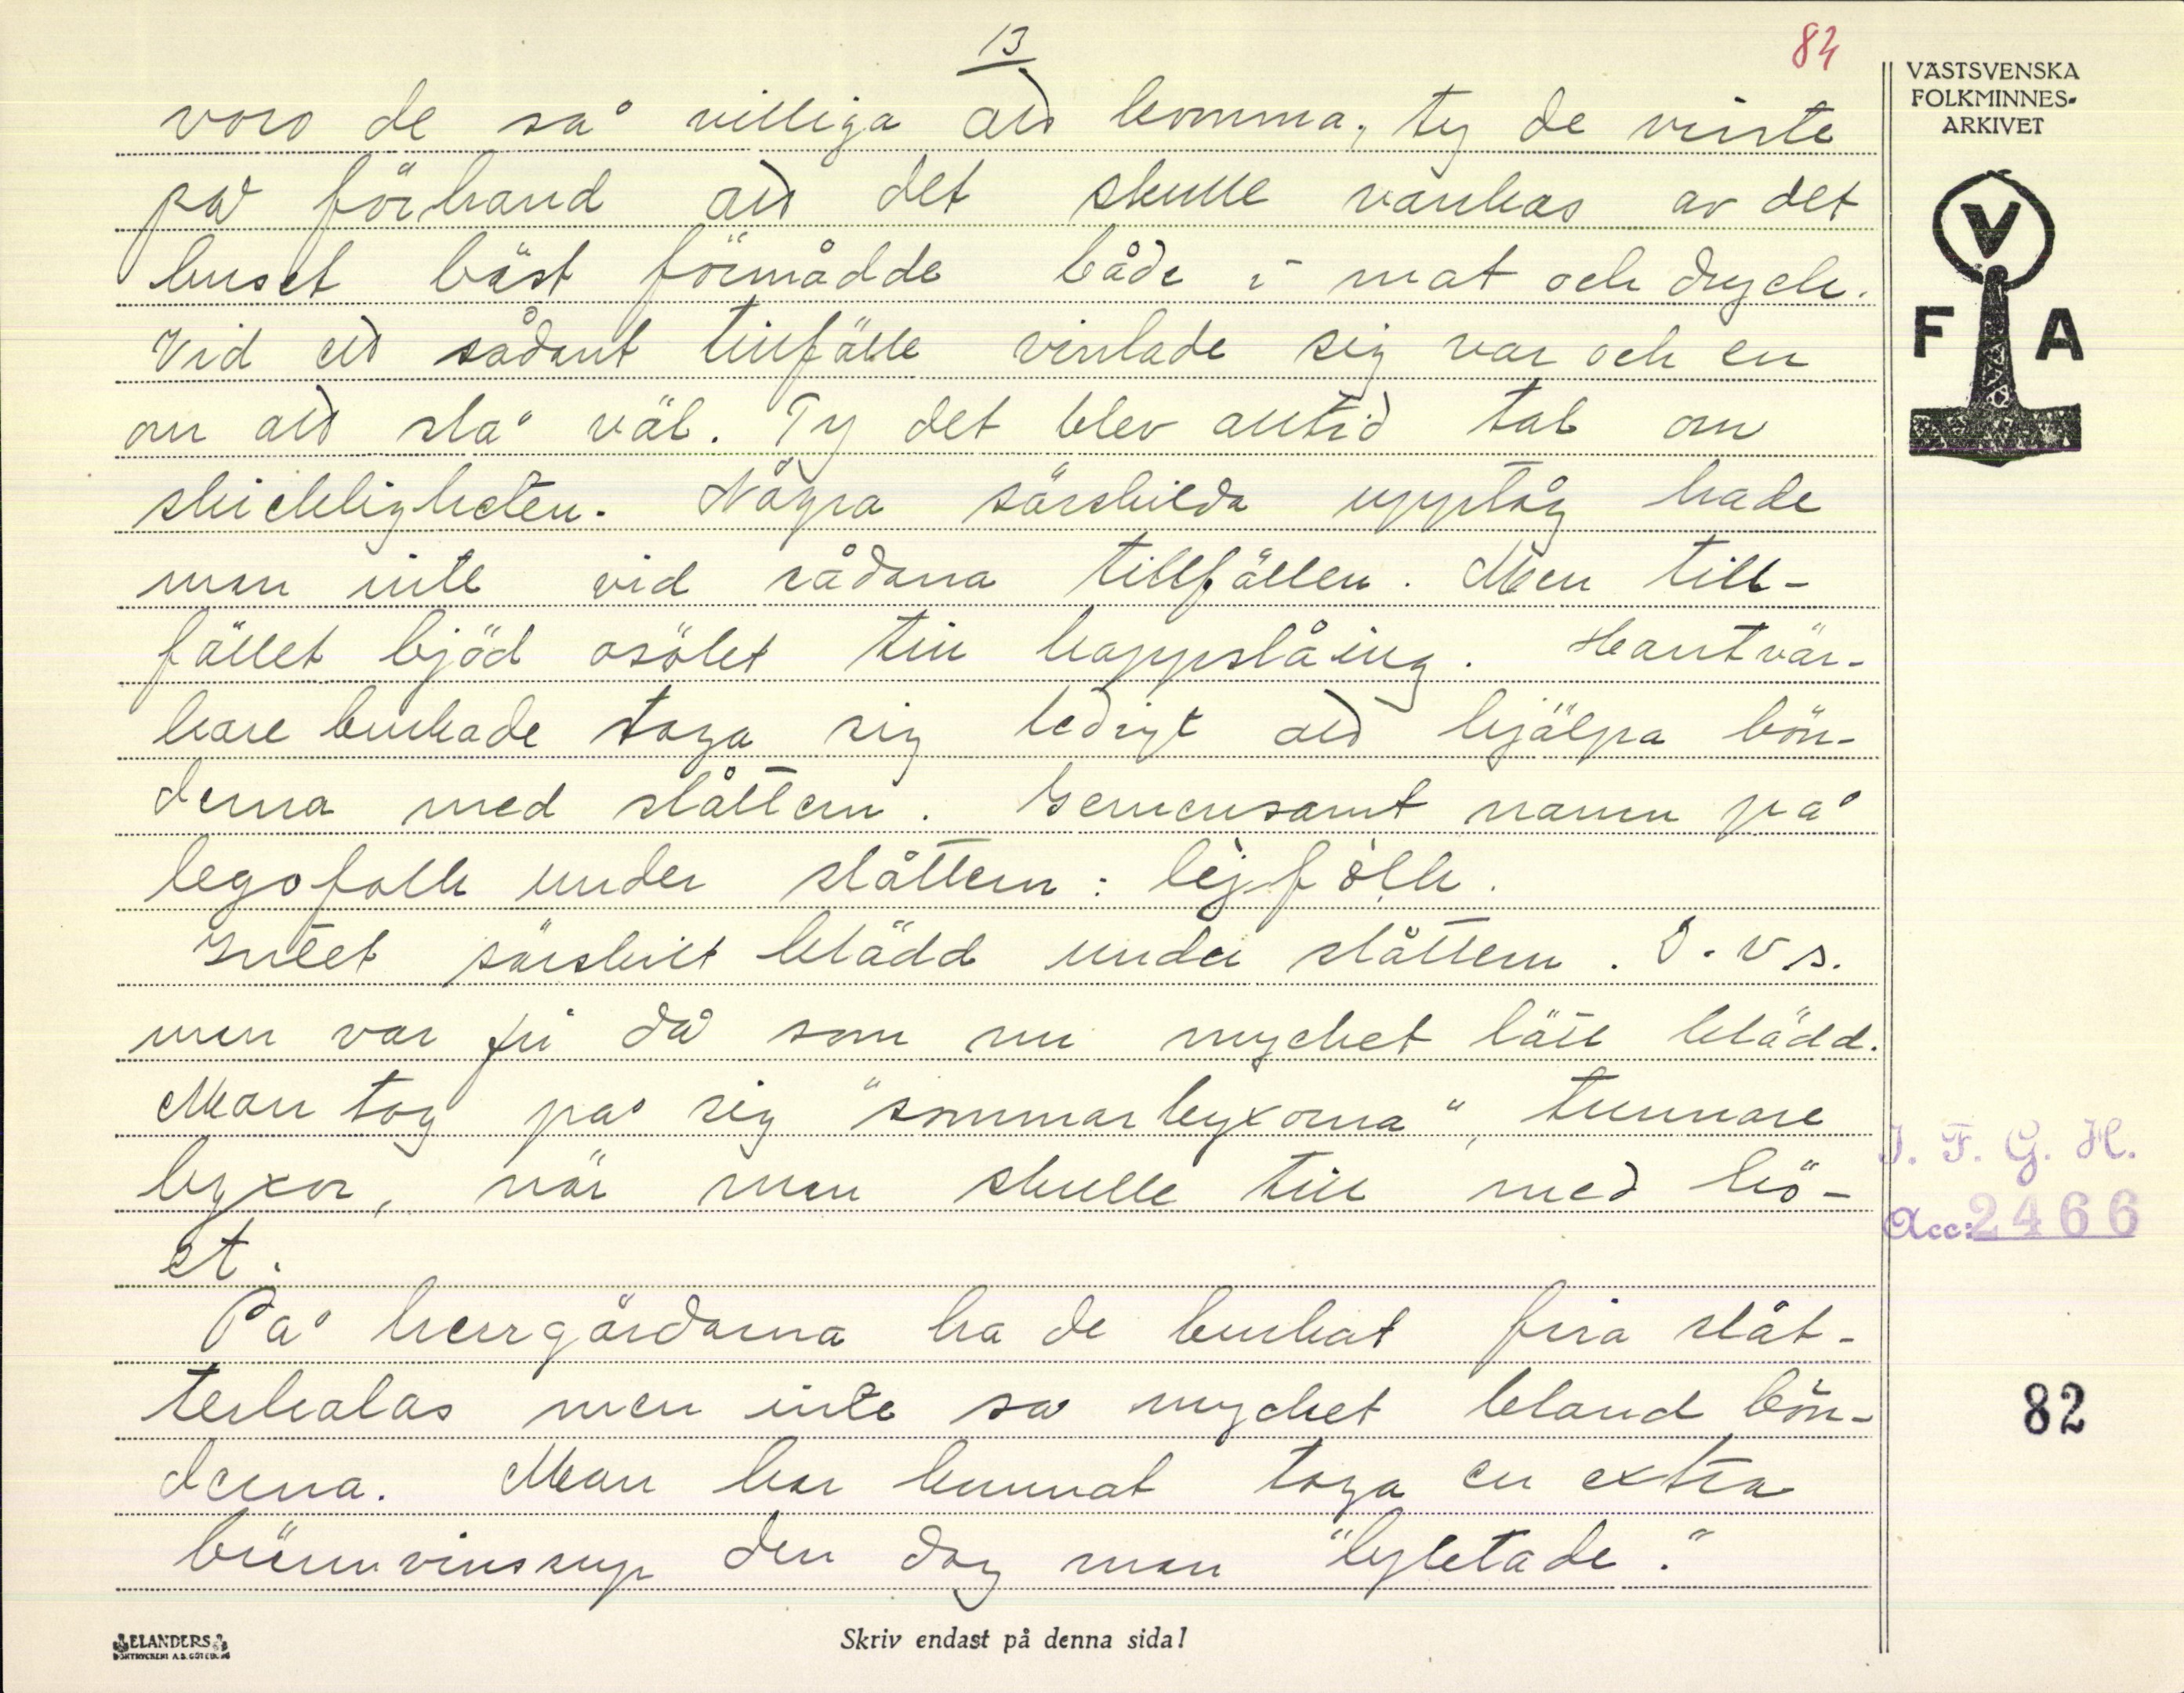 13
84
voro de så villiga att komma, ty de visste
på förhand att det skulle vankas av det
huset bäst förmådde både i mat och dryck.
Vid ett sådant tillfälle vinlade sig var och en
om att slå väl. Ty det blev alltid tal om
skickligheten. Några särskilda upptåg hade
man inte vid sådana tillfällen. Men till-
fället bjöd osökt till kappslåing. Hantvär-
kare brukade taga sig ledigt att hjälpa bön-
derna med slåttern. Gemensamt namn på
legofolk under slåttern: lejfolk.
Intet särskilt klädd under slåttern. D.v.s.
man var ju då som nu mycket lätt klädd.
Man tog på sig "sommarbyxorna", tunnare
byxor, när man skulle till med hö-
et.
På herrgårdarna ha de brukat fira slåt-
terkalas men inte så mycket bland bön-
derna. Man har kunnat taga en extra
brännvinssup den dag man
Skriv endast på denna sida!
ELANDERS
BOKTRYCKERI A.B. GÖTEBORG
VÄSTSVENSKA
FOLKMINNES-
ARKIVET
V
F A
I. F. G. H.
Acc: 2466
82